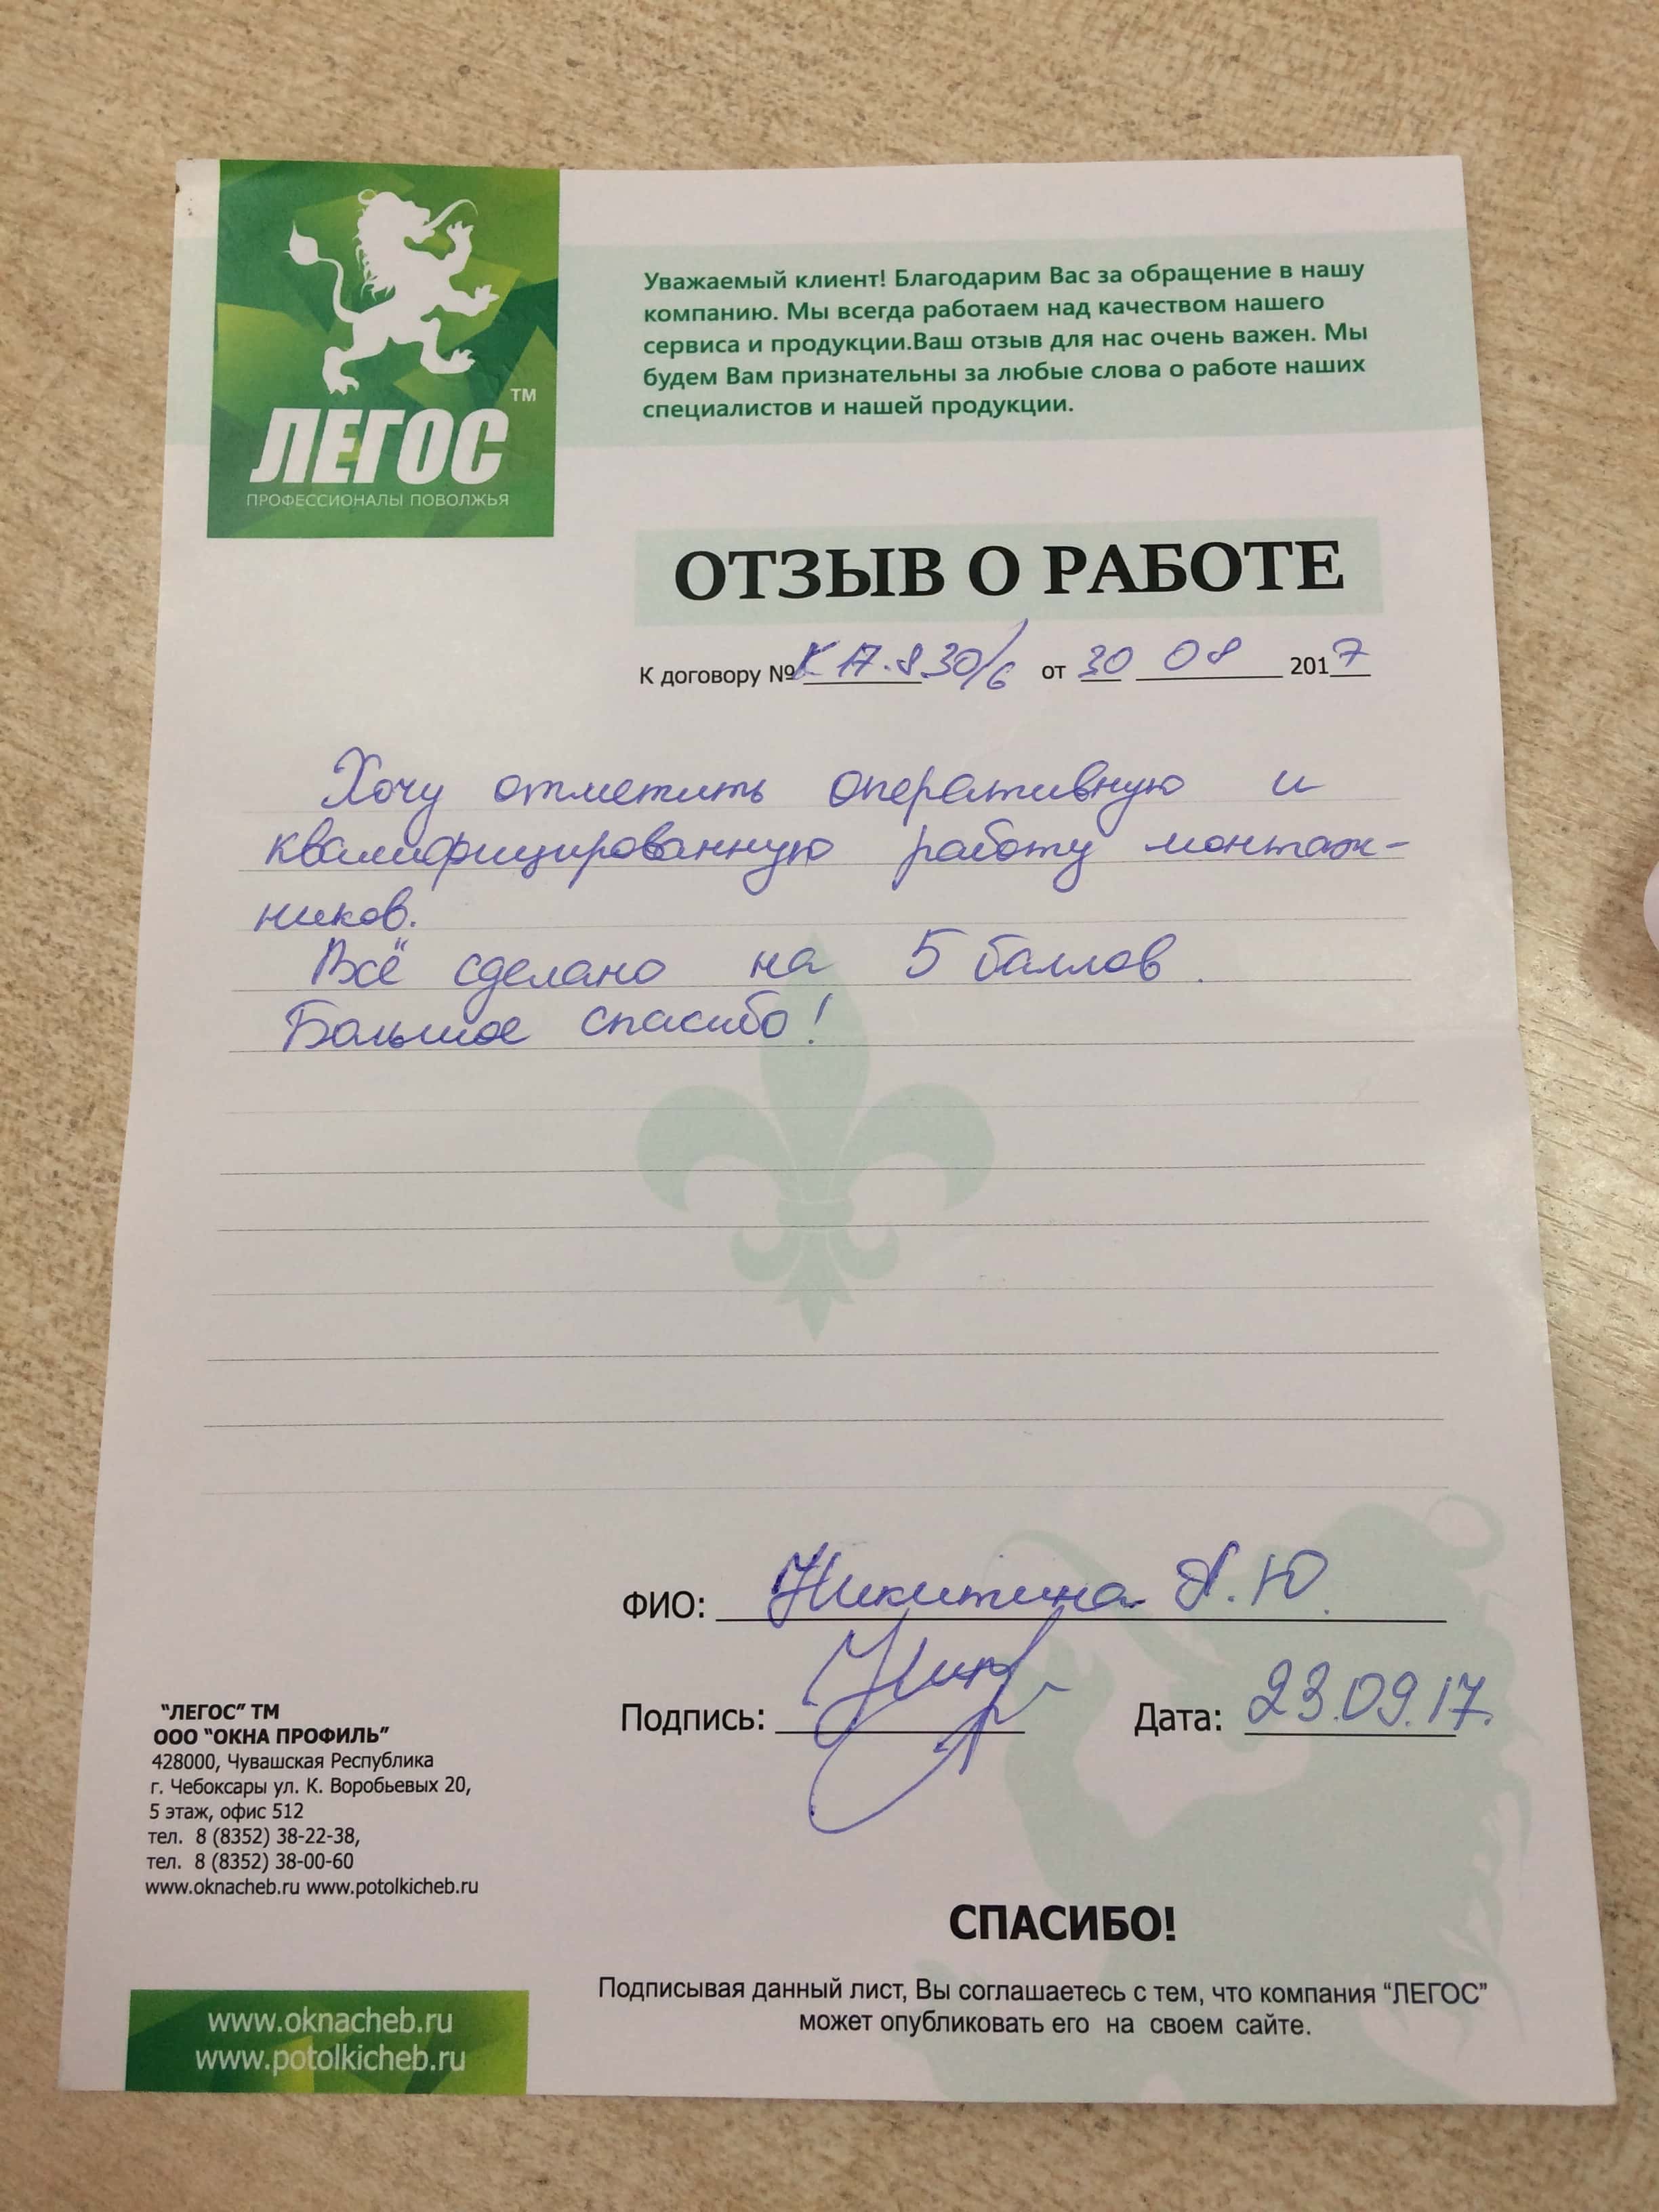 ЛЕГОС ТМ
ПРОФЕССИОНАЛЫ ПОВОЛЖЬЯ
Уважаемый клиент! Благодарим Вас за обращение в нашу
компанию. Мы всегда работаем над качеством нашего
сервиса и продукции.Ваш отзыв для нас очень важен. Мы
будем Вам признательны за любые слова о работе наших
специалистов и нашей продукции.
ОТЗЫВ О РАБОТЕ
К договору № К 17.830/6 от 30 08 2017
Хочу отметить оперативную и
квалифицированную работу монтаж-
ников.
Всё сделано на 5 баллов.
Большое спасибо!
ФИО: Никитина А.Ю.
Подпись:
Дата: 23.09.17.
"ЛЕГОС" ТМ
ООО "ОКНА ПРОФИЛЬ"
428000, Чувашская Республика
г. Чебоксары ул. К. Воробьевых 20,
5 этаж, офис 512
тел. 8 (8352) 38-22-38,
тел. 8 (8352) 38-00-60
www.oknacheb.ru www.potolkicheb.ru
СПАСИБО!
Подписывая данный лист, Вы соглашаетесь с тем, что компания "ЛЕГОС"
может опубликовать его на своем сайте.
www.oknacheb.ru
www.potolkicheb.ru